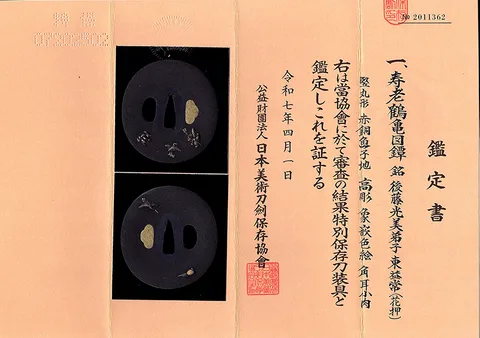 № 2011362
鑑定書
一、寿老鶴亀図鐔 銘 後藤光美弟子 東益常(花押)
竪丸形 赤銅魚子地 高彫 象嵌色絵 角耳小肉
右は當協會に於て審査の結果特別保存刀装具と
鑑定しこれを証する
令和七年四月一日
公益財團法人 日本美術刀劍保存協會